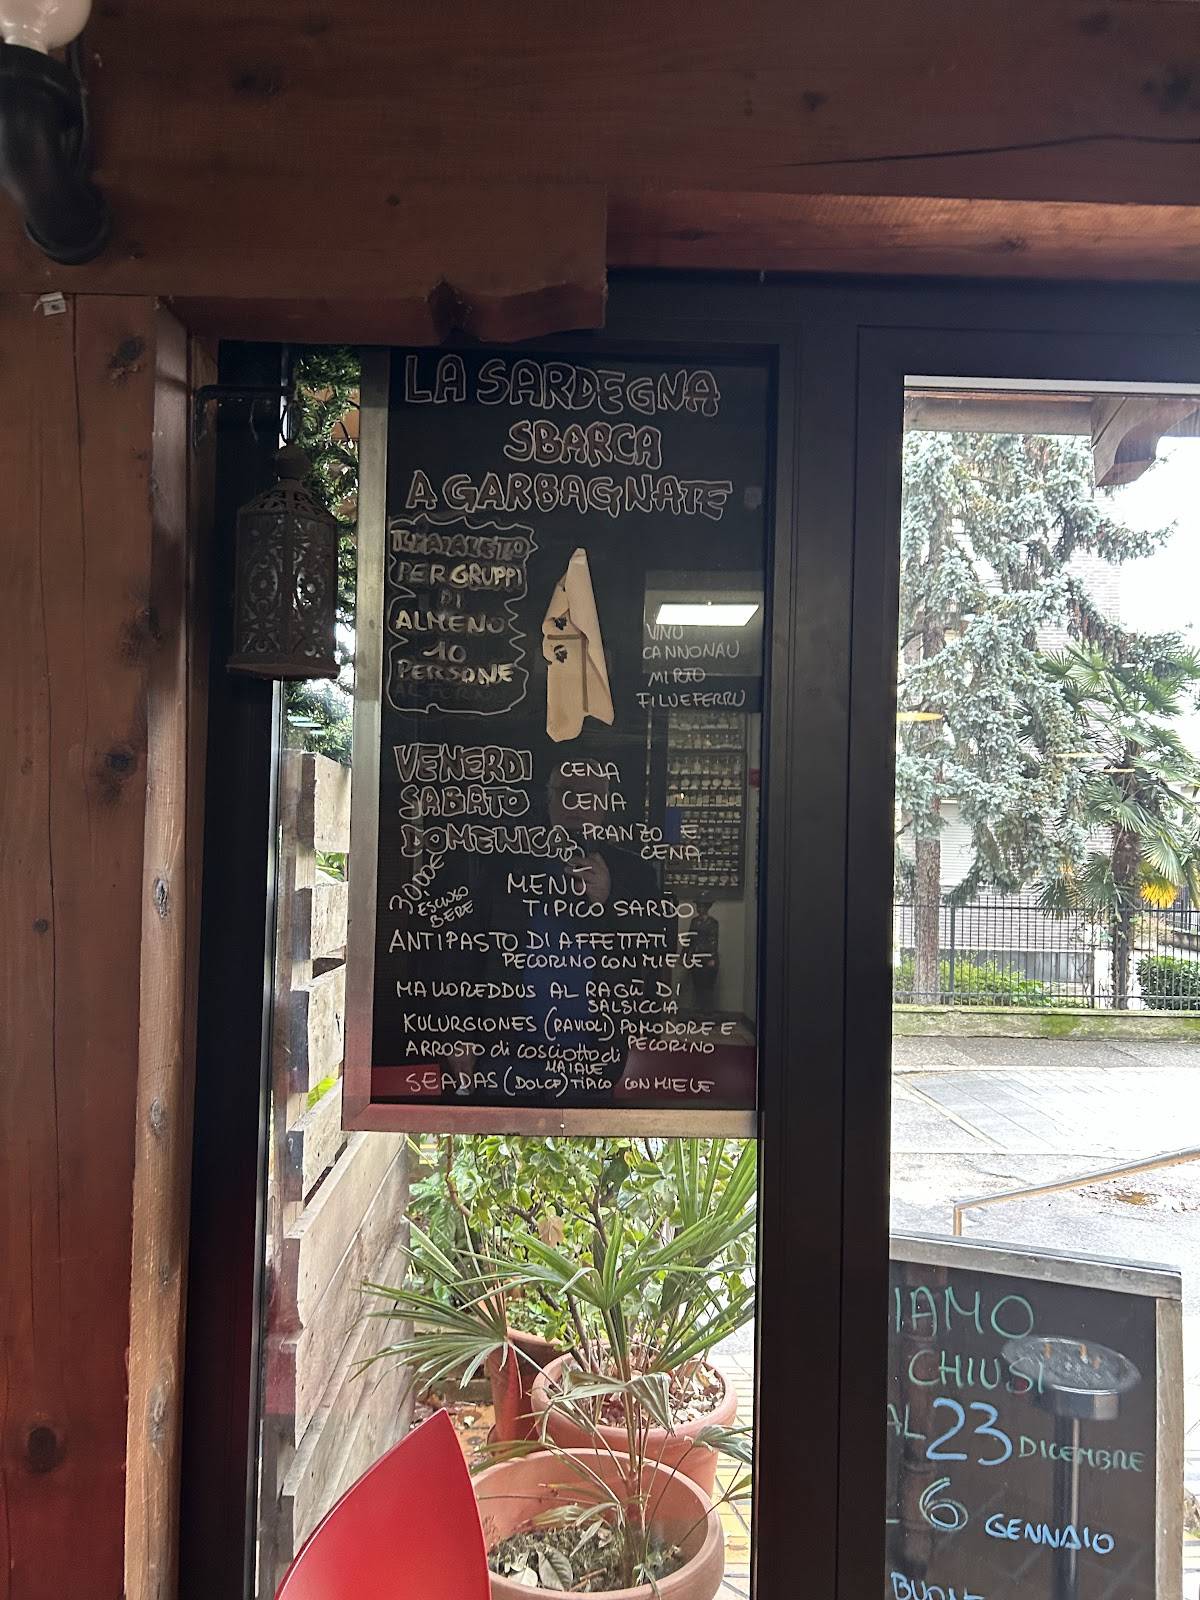 LA SARDEGNA
SBARCA
A GARBAGNATE
PER GRUPPI
DI
ALMENO
10
PERSONE
VINU
CANNONAU
MIRTO
FILUEFERRU
VENERDI CENA
SABATO CENA
DOMENICA PRANZO E
CENA
30,00€
ESCLUSO
BERE
MENÙ
TIPICO SARDO
ANTIPASTO DI AFFETTATI E
PECORINO CON MIELE
MALLOREDDUS AL RAGÙ DI
SALSICCIA
KULURGIONES (RAVIOLI) POMODORE E
PECORINO
ARROSTO di cosciotto di
MAIALE
SEADAS (DOLCE) TIPICO CON MIELE
IAMO
CHIUSI
AL 23 DICEMBRE
6 GENNAIO